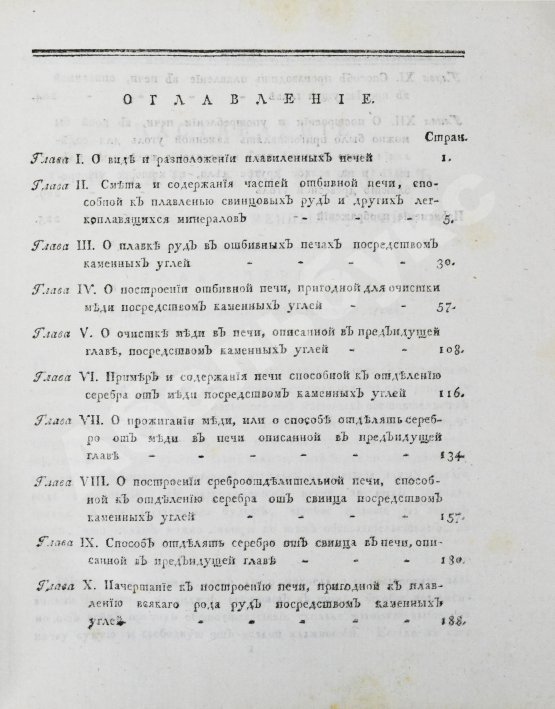 ОГЛАВЛЕНІЕ.
Стран.
Глава I. О видѣ и разположеніи плавиленныхъ печей - 1.
Глава II. Смѣта и содержанія частей отбивной печи, спо-
собной къ плавленью свинцовыхъ рудъ и другихъ лег-
коплавящихся минераловъ - - - 5.
Глава III. О плавкѣ рудъ въ отбивныхъ печахъ посредствомъ
каменныхъ углей - - - - 30.
Глава IV. О построеніи отбивной печи, пригодной для очистки
мѣди посредствомъ каменныхъ углей - - 57.
Глава V. О очисткѣ мѣди въ печи, описанной въ предъидущей
главѣ, посредствомъ каменныхъ углей - - 108.
Глава VI. Примѣръ и содержанія печи способной къ отдѣленію
серебра отъ мѣди посредствомъ каменныхъ углей - 116.
Глава VII. О прожиганіи мѣди, или о способѣ отдѣлять сереб-
ро отъ мѣди въ печи описанной въ предъидущей
главѣ - - - - - 134.
Глава VIII. О построеніи среброотдѣлительной печи, способ-
ной къ отдѣленію серебра отъ свинца посредствомъ
каменныхъ углей - - - - 157.
Глава IX. Способъ отдѣлять серебро отъ свинца въ печи, опи-
санной въ предъидущей главѣ - - - 180.
Глава X. Начертаніе къ построенію печи, пригодной къ плав-
ленію всякаго рода рудъ посредствомъ каменныхъ
углей - - - - - 188.